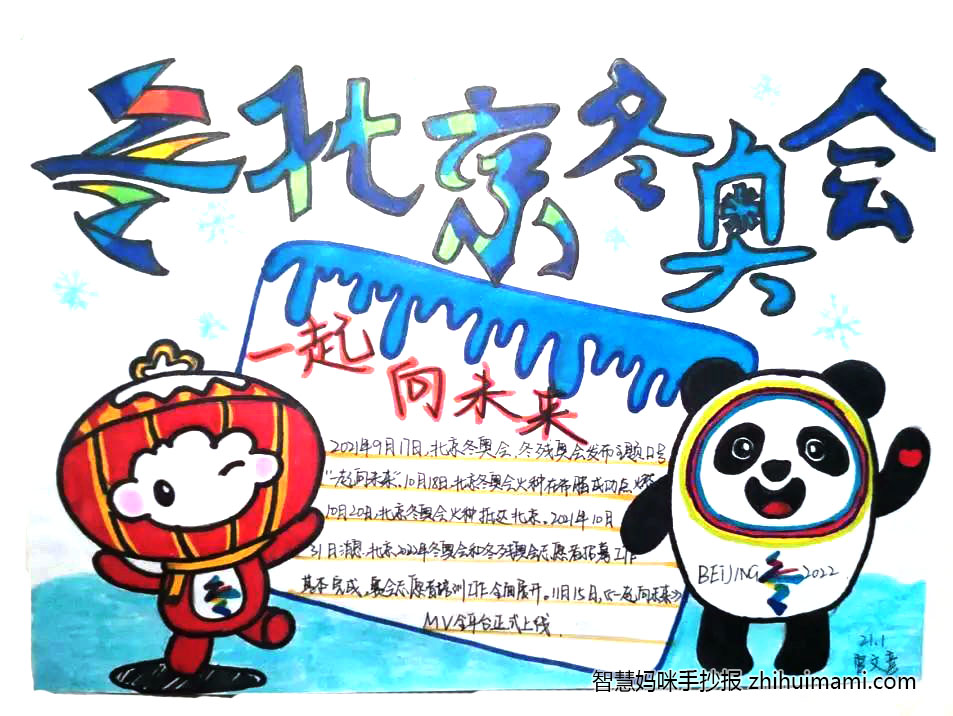 北京冬奥会
一起
向未来
2021年9月17日,北京冬奥会、冬残奥会发布主题口号
“一起向未来”,10月18日,北京冬奥会火种在希腊成功点燃
10月20日,北京冬奥会火种抵达北京。2021年10月
31日消息,北京2022年冬奥会和冬残奥会志愿者招募工作
基本完成。奥会志愿者培训工作全面展开。11月15日,《一起向未来》
MV全平台正式上线.
BEIJING 2022
21.1
智慧妈咪手抄报 zhihuimami.com